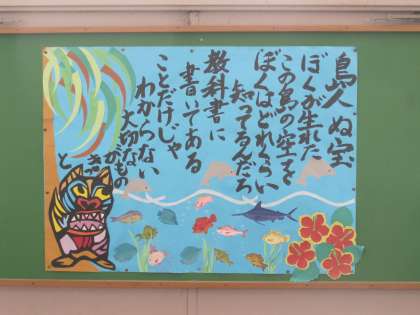 島人ぬ宝
ぼくが生れた
この島の空を
ぼくはどれくらい
知ってるんだろ
教科書に
書いてある
ことだけじゃ
わからない
大切なもの
が
き
と